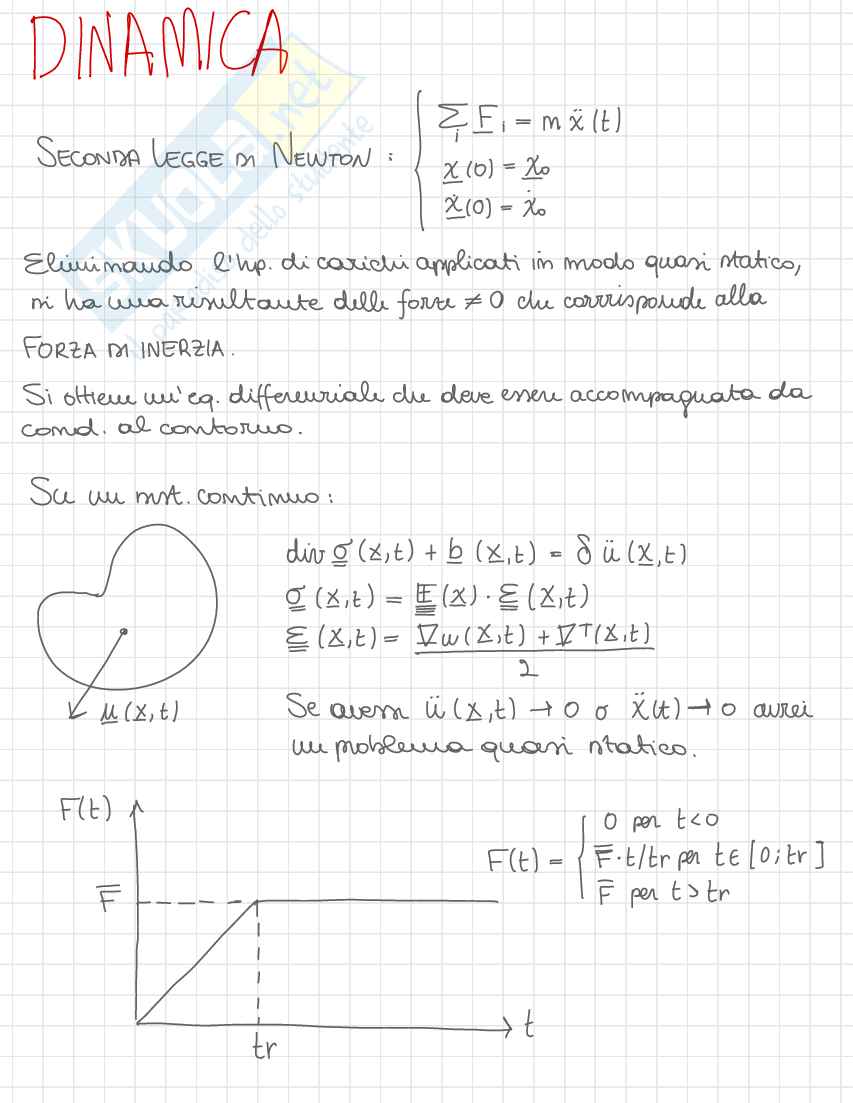 DINAMICA
SECONDA LEGGE DI NEWTON :
∑_i F_i = m ẍ (t)
x (0) = x₀
ẋ (0) = ẋ₀
Eliminando l'hp. di carichi applicati in modo quasi statico,
si ha una risultante delle forze ≠ 0 che corrisponde alla
FORZA DI INERZIA.
Si ottiene un'eq. differenziale che deve essere accompagnata da
cond. al contorno.
Su un sist. continuo :
div σ (x,t) + b (x,t) = δ ü (x,t)
σ (x,t) = E (x) · ε (x,t)
ε (x,t) = (∇u (x,t) + ∇T (x,t)) / 2
u (x,t)
Se avessi ü (x,t) → 0 o ẍ(t) → 0 avrei
un problema quasi statico.
F(t)
F̅
tr
t
F(t) =
0 per t<0
F̅ · t/tr per t∈ [0;tr]
F̅ per t> tr
SKUOLA.net
il paradiso dello studente